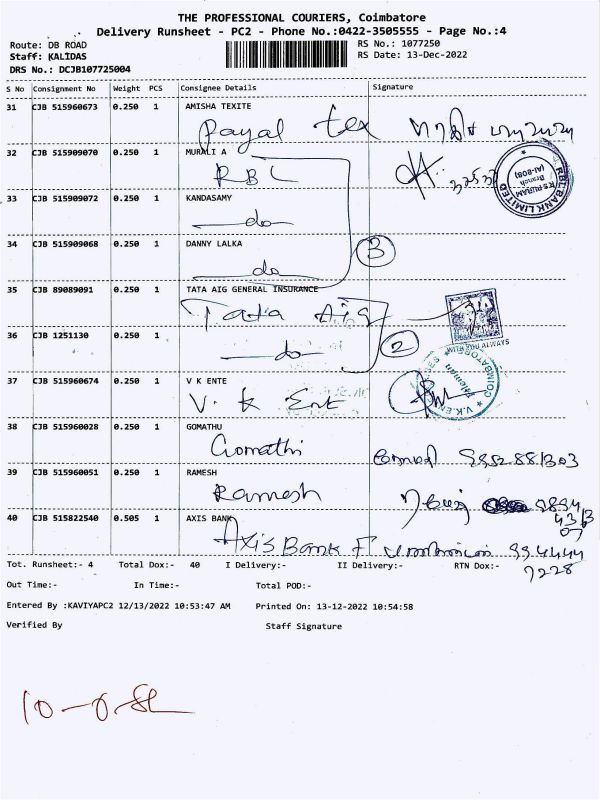 THE PROFESSIONAL COURIERS, Coimbatore
Delivery Runsheet - PC2 - Phone No.:0422-3505555 - Page No.:4
Route: DB ROAD RS No.: 1077250
Staff: KALIDAS RS Date: 13-Dec-2022
DRS No.: DCJB107725004
S No Consignment No Weight PCS Consignee Details Signature
31 CJB 515960673 0.250 1 AMISHA TEXITE
Payal tex
32 CJB 515909070 0.250 1 MURALI A
RBL
RBL BANK LIMITED R S PURAM Branch
33 CJB 515909072 0.250 1 KANDASAMY
do
34 CJB 515909068 0.250 1 DANNY LALKA
do
3
35 CJB 89089091 0.250 1 TATA AIG GENERAL INSURANCE
Tata AIG
36 CJB 1251130 0.250 1
do
2
WITH YOU ALWAYS
37 CJB 515960674 0.250 1 V K ENTE
V. K Ent
COIMBATORE
38 CJB 515960028 0.250 1 GOMATHU
Gomathi
39 CJB 515960051 0.250 1 RAMESH
Ramesh
40 CJB 515822540 0.505 1 AXIS BANK
Axis Bank
Tot. Runsheet:- 4 Total Dox:- 40 I Delivery:- II Delivery:- RTN Dox:-
7228
Out Time:- In Time:- Total POD:-
Entered By :KAVIYAPC2 12/13/2022 10:53:47 AM Printed On: 13-12-2022 10:54:58
Verified By Staff Signature